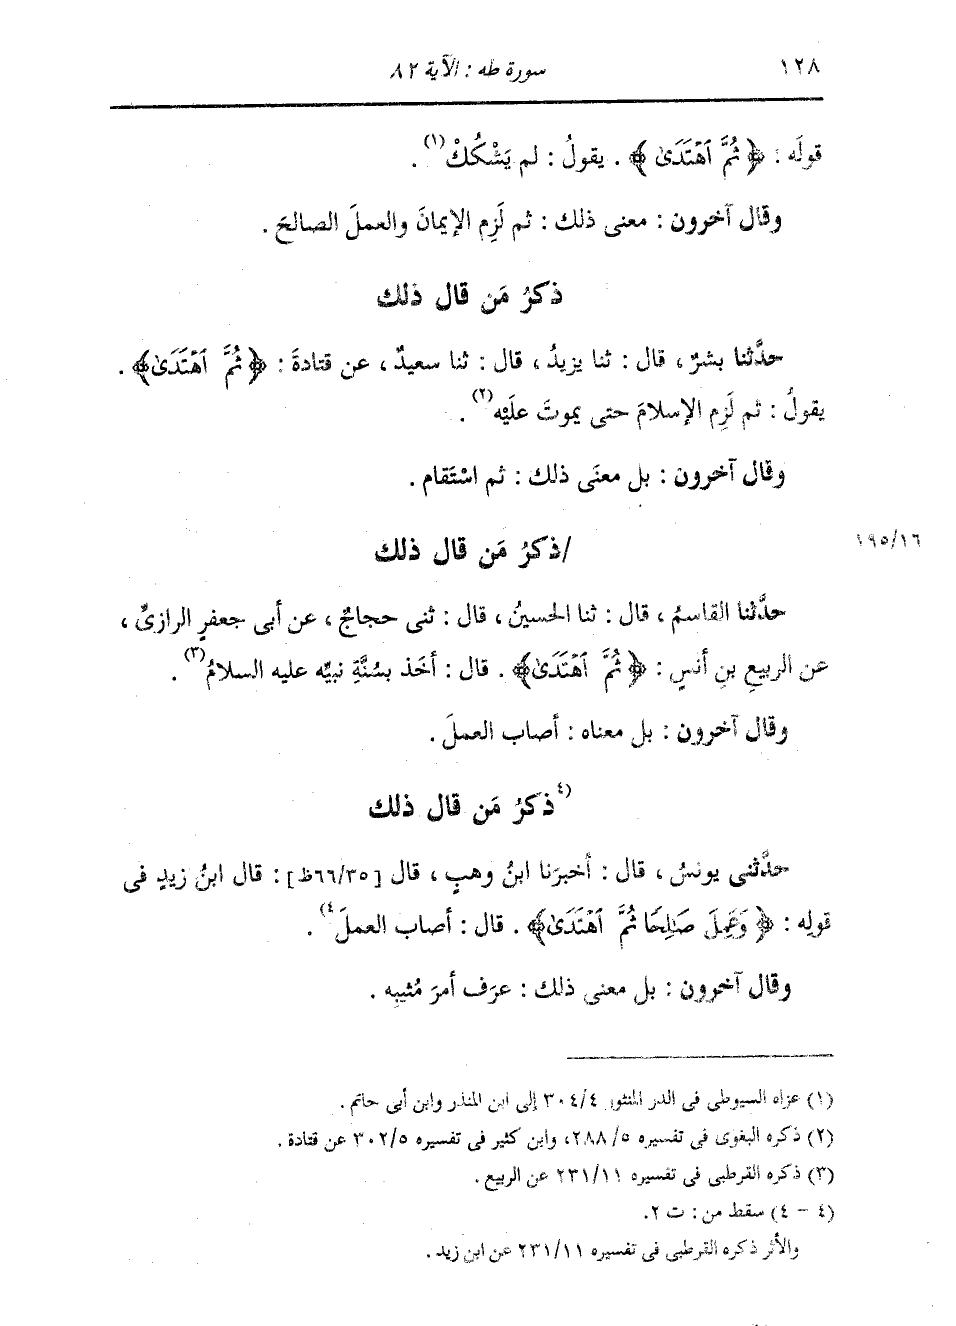 ١٢٨ سورة طه : الآية ٨٢
قولَه : ﴿ ثُمَّ اَهْتَدَىٰ ﴾ . يقولُ : لم يَشْكُكْ(١) .
وقال آخرون : معنى ذلك : ثم لَزِم الإيمانَ والعملَ الصالحَ .
ذكرُ مَن قال ذلك
حدَّثنا بشرٌ ، قال : ثنا يزيدُ ، قال : ثنا سعيدٌ ، عن قتادةَ : ﴿ ثُمَّ اَهْتَدَىٰ﴾ .
يقولُ : ثم لَزِم الإسلامَ حتى يموتَ علَيْه(٢) .
وقال آخرون : بل معنَى ذلك : ثم اسْتَقام .
/ذكرُ مَن قال ذلك ١٩٥/١٦
حدَّثنا القاسمُ ، قال : ثنا الحسينُ ، قال : ثنى حجاجٌ ، عن أبى جعفرٍ الرازىِّ ،
عن الربيعِ بنِ أنسٍ : ﴿ ثُمَّ اَهْتَدَىٰ﴾ . قال : أخَذ بسُنَّةِ نبيِّه عليه السلامُ(٣) .
وقال آخرون : بل معناه : أصاب العملَ .
(٤ذكرُ مَن قال ذلك
حدَّثنى يونسُ ، قال : أخبرَنا ابنُ وهبٍ ، قال [٦٦/٣٥ظ] : قال ابنُ زيدٍ فى
قولِه : ﴿ وَعَمِلَ صَٰلِحًا ثُمَّ اَهْتَدَىٰ﴾ . قال : أصاب العملَ٤) .
وقال آخرون : بل معنى ذلك : عرَف أمرَ مُثيبِه .
(١) عزاه السيوطى فى الدر المنثور ٣٠٤/٤ إلى ابن المنذر وابن أبى حاتم .
(٢) ذكره البغوى فى تفسيره ٢٨٨/٥، وابن كثير فى تفسيره ٣٠٢/٥ عن قتادة .
(٣) ذكره القرطبى فى تفسيره ٢٣١/١١ عن الربيع .
(٤ - ٤) سقط من : ت ٢.
والأثر ذكره القرطبى فى تفسيره ٢٣١/١١ عن ابن زيد .